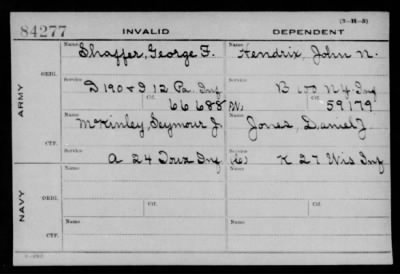 84277 INVALID DEPENDENT (3-H-5)
Name Shaffer, George F. Name Hendrix, John N.
ARMY ORIG. Service D 190 & I 12 Pa. Inf Service B 100 N.Y. Inf
Ctf. 66688 Ctf. 59179
CTF. Name McKinley, Seymour J. Name Jones, Daniel J
Service A 24 Inf Service K 27 Wis Inf
NAVY ORIG. Name Name
Ctf. Ctf.
CTF. Name Name